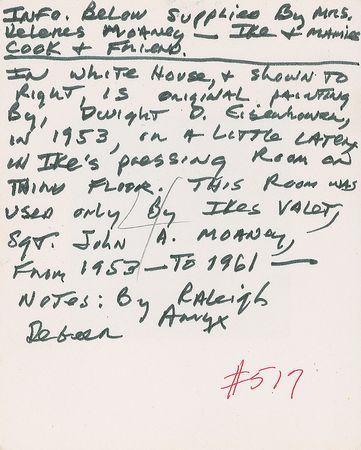 INFO. Below Supplied By Mrs.
Delores Moaney — Ike & Mamies
Cook & Friend.
IN White House, & Shown To
Right, is original painting
By, Dwight D. Eisenhower,
in 1953, or A Little Later,
in Ike's pressing Room on
Third Floor. This Room was
used only By Ikes Valet,
Sgt. John A. Moaney,
From 1953 — To 1961 —
Notes: By Raleigh
DeGeer Amyx
#517